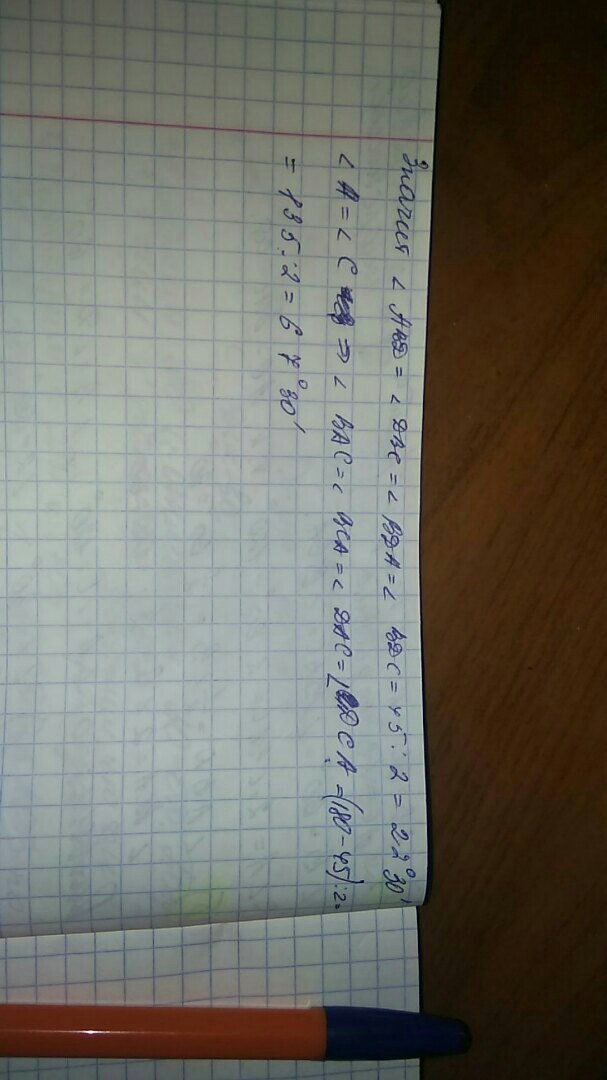 Значит ∠ ABD = ∠ DBC = ∠ BDA = ∠ BDC = 45 : 2 = 22°30'
∠ A = ∠ C ⇒ ∠ BAC = ∠ BCA = ∠ DAC = ∠ DCA = (180 - 45) : 2 =
= 135 : 2 = 67°30'